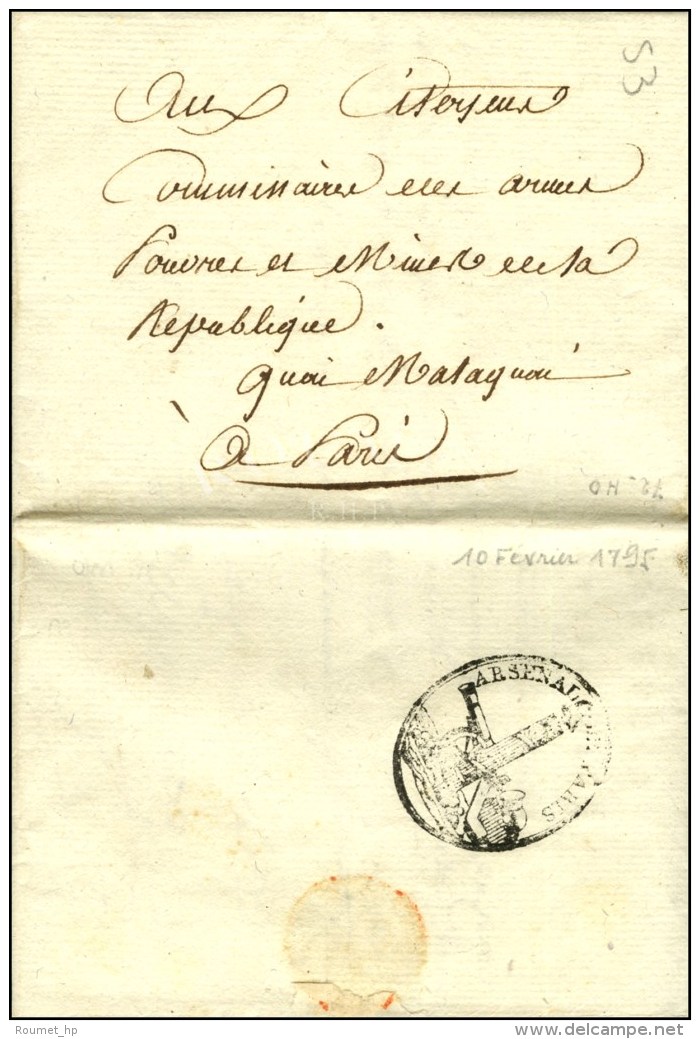 53
Aux Citoyens
Commissaires des armes
Poudres et Mines de la
République.
Quai Malaquai
à Paris
10 Février 1795
ARSENAL DE PARIS
Roumet_hp
© www.delcampe.net